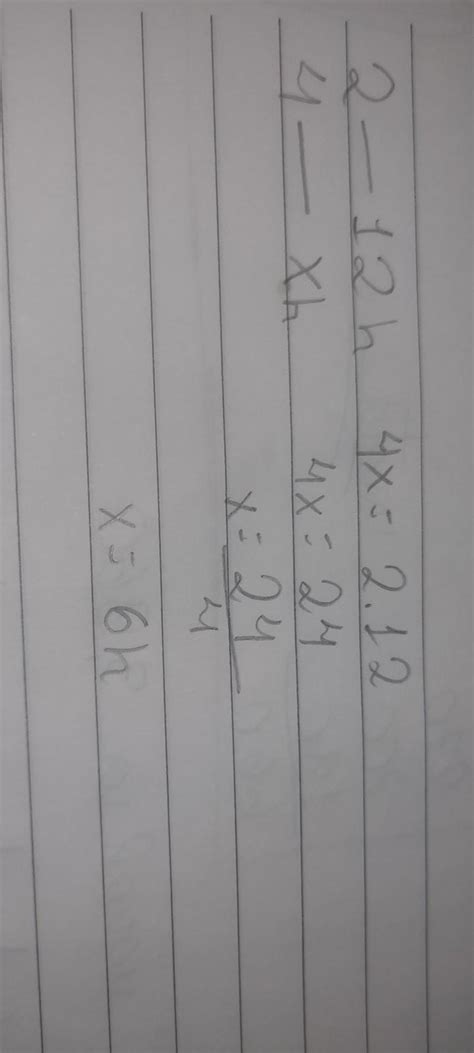 2 — 12h 4x = 2.12
4 — xh 4x = 24
x = 24
4
x = 6h